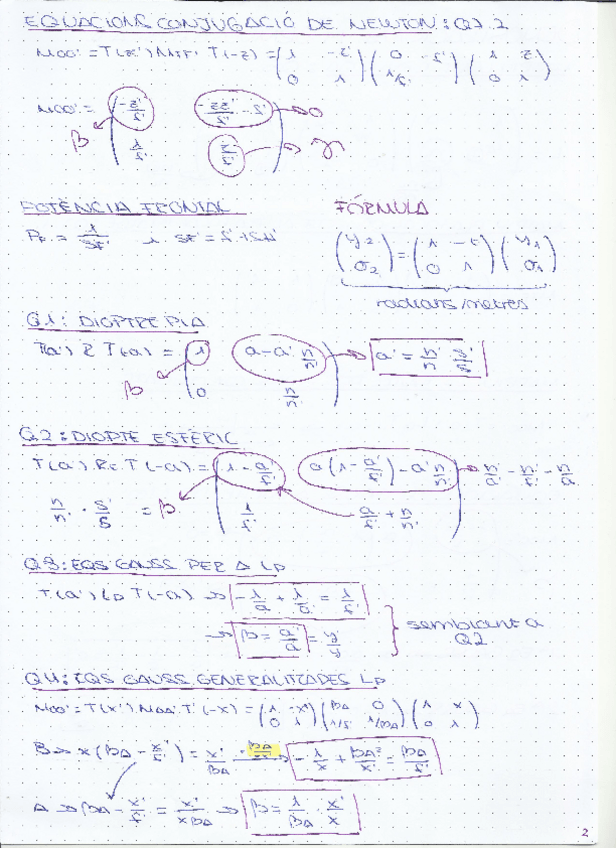 EQUACIONS CONJUGACIÓ DE NEWTON: Q7.2
MOO' = T(z') MFF' T(-z) = (1 -z' / 0 1) (0 -f' / 1/f' 0) (1 z / 0 1)
MOO' = (-z'/f' -zz'/f' - f' / 1/f' z/f') → 0
β
γ'
POTÈNCIA FRONTAL
FÓRMULA
(y2 / σ2) = (1 -t / 0 1) (y1 / σ1)
radians/metres
Q.1: DIOPTRE PLA
T(a') R T(-a) = (1 a - a' n/n' / 0 n/n') → a' = n'/n · s'/s
β
Q2: DIOPTE ESFÈRIC
T(a') Re T(-a) = (1 - a'/f' a(1 - a'/f') - a' n/n' / 1/f' a/f' + n/n') → n'/a' - n'/f' - n/a
n/n' · s'/s = β
Q3: EQS GAUSS PER A LP
T(a') LP T(-a) → -1/a + 1/a' = 1/f'
→ β = a'/a = y'/y
semblant a
Q2
Q4: EQS GAUSS GENERALITZADES LP
MOO' = T(x') MAA' T(-x) = (1 -x' / 0 1) (βA 0 / 1/f' 1/βA) (1 x / 0 1)
B → x(βA - x'/f') = x'/βA → -1/x + βA²/x' = βA/f'
A → βA - x'/f' = x'/xβA → β = 1/βA · x'/x
2